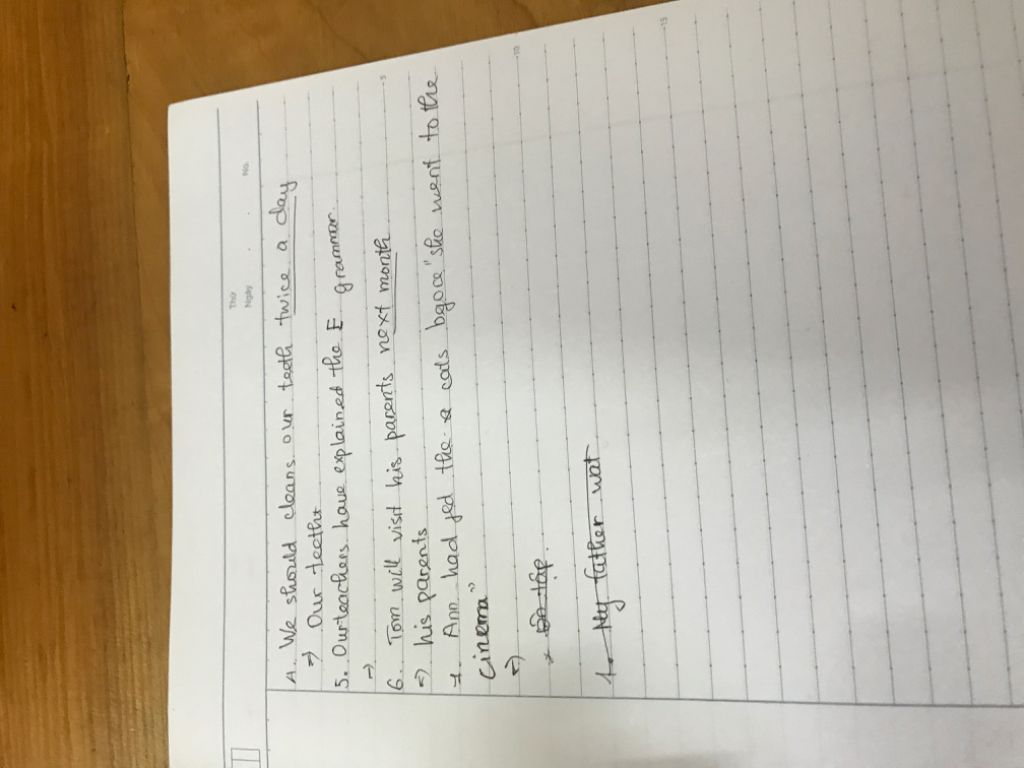 Thứ
Ngày . . No.
4. We should cleans our teeth twice a day
=> Our teeths
5. Ourteachers have explained the E grammar.
=>
6. Tom will visit his parents next month
5
=> his parents
7. Ann had fed the cats before "she went to the
cinema"
=>
10
* Ôn tập.
1. My father wat
15